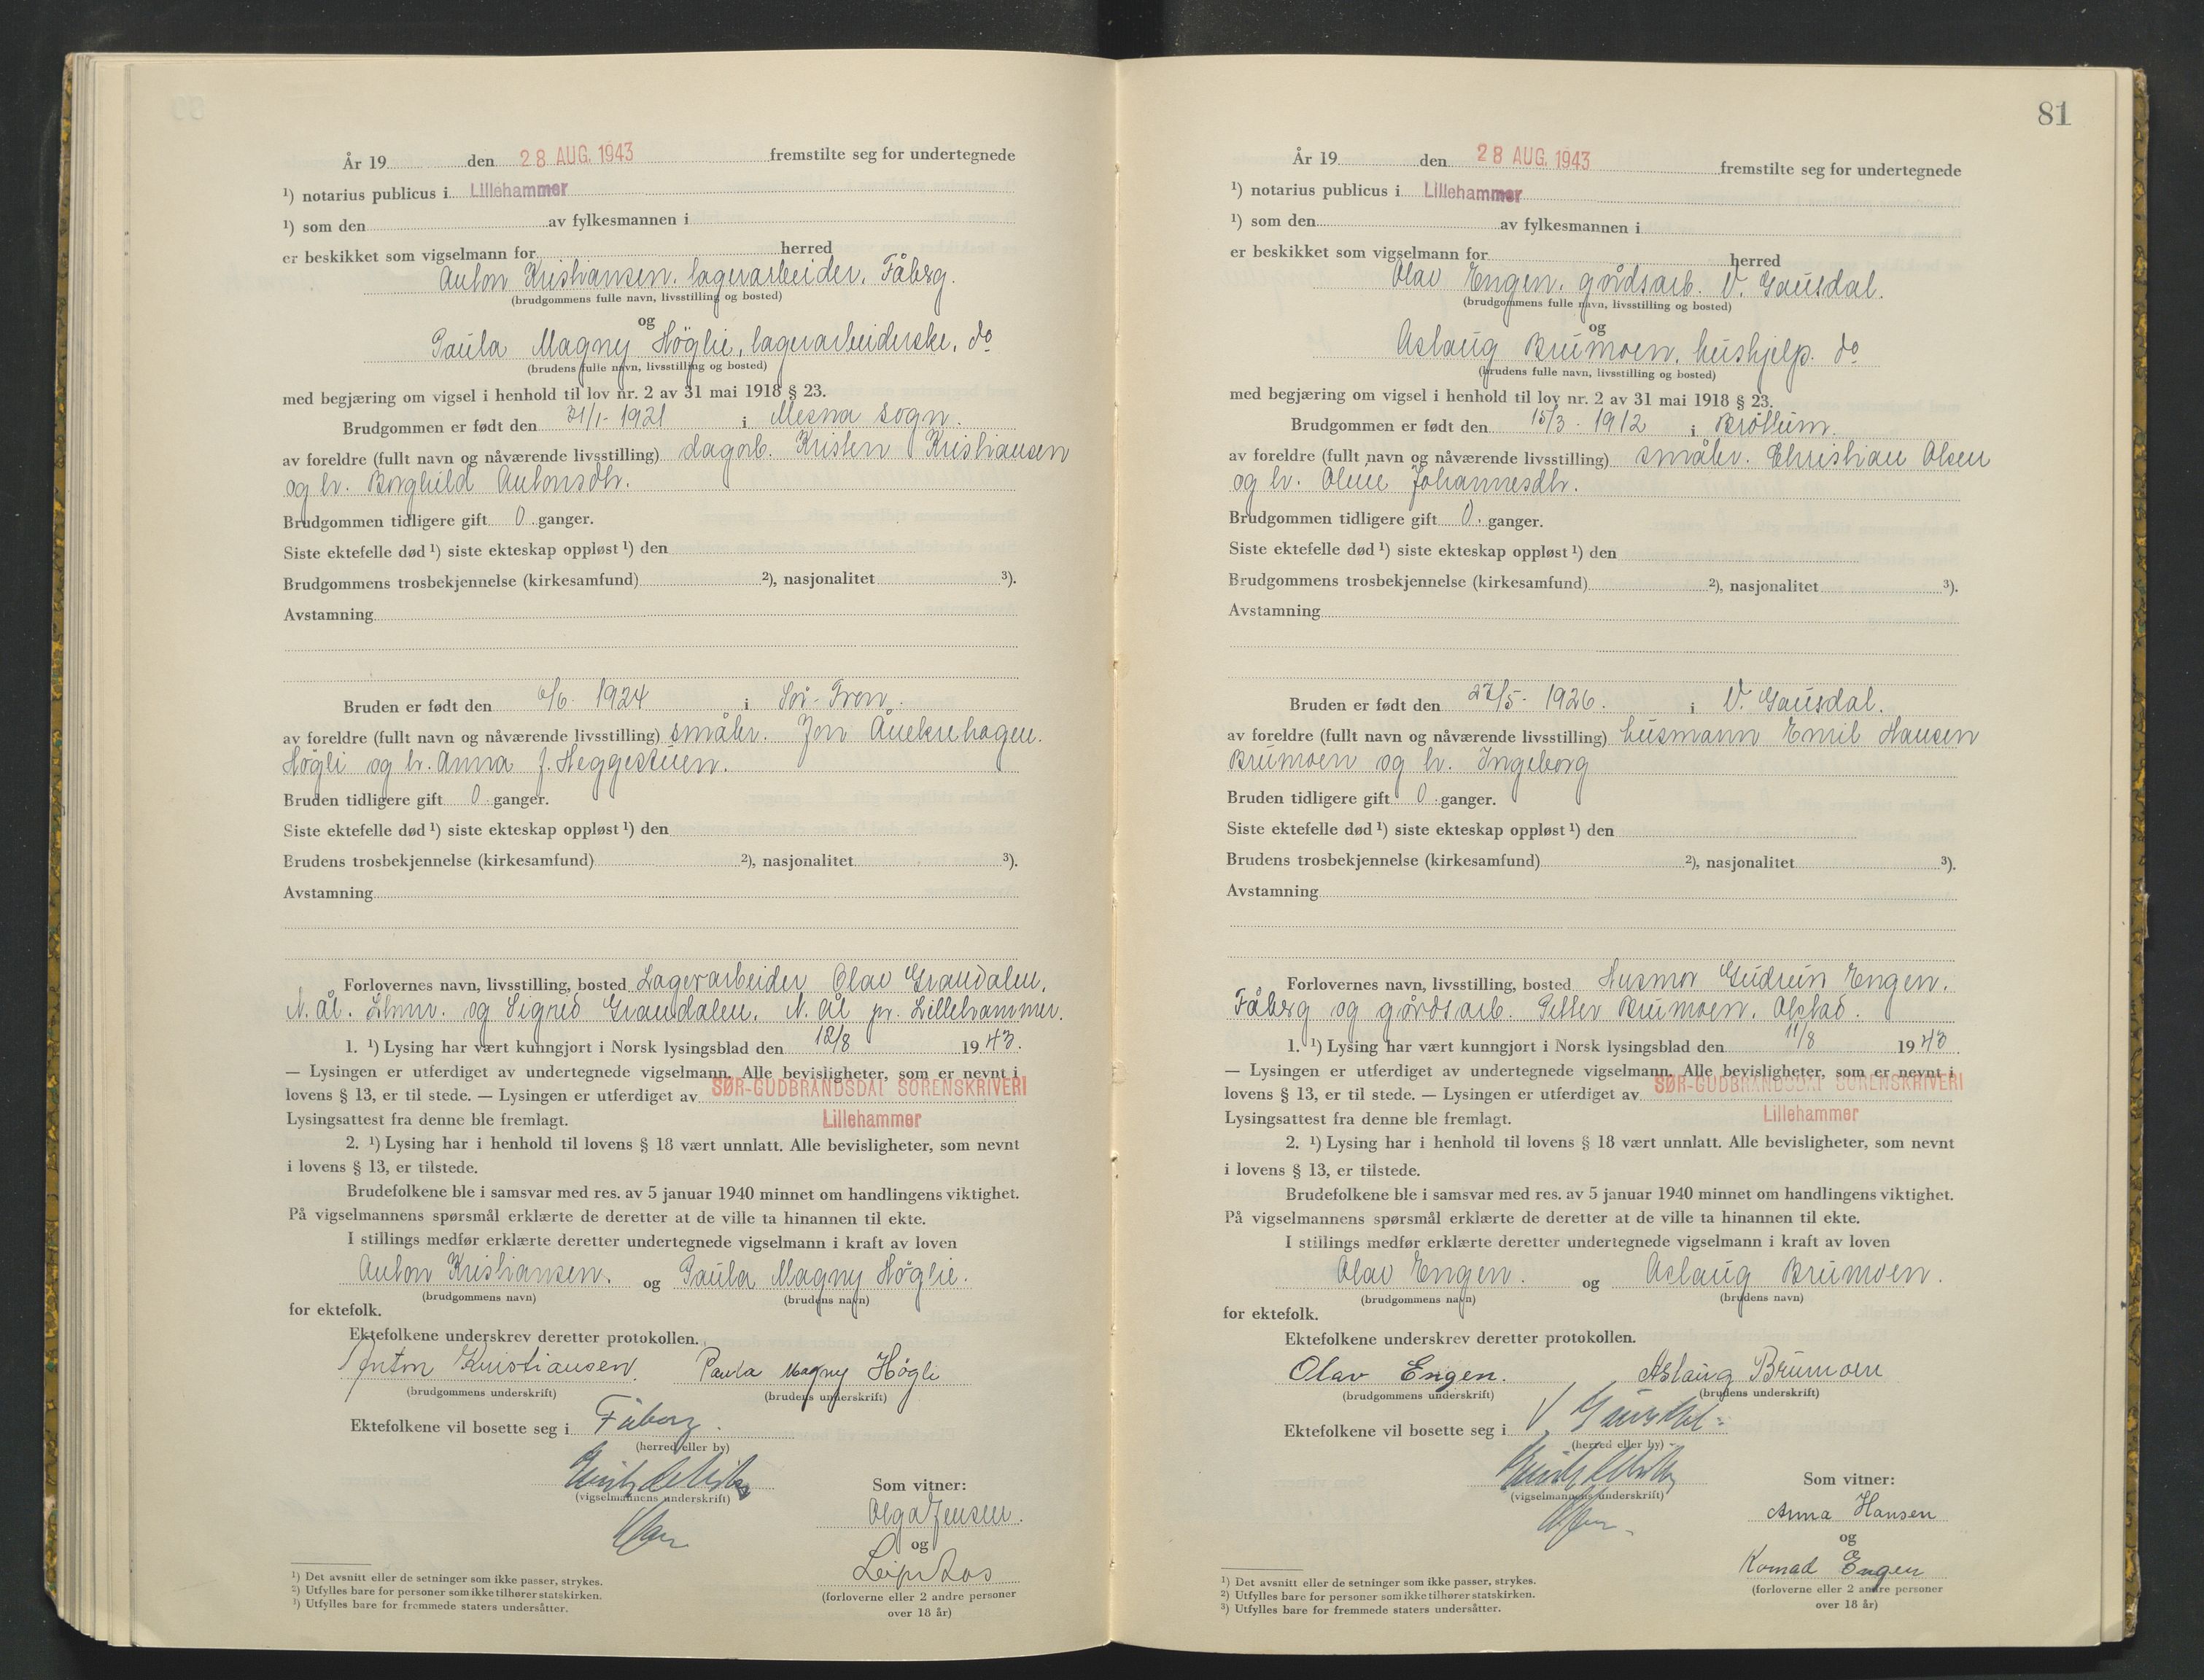 År 19 den 28 AUG. 1943 fremstilte seg for undertegnede
¹) notarius publicus i Lillehammer
¹) som den av fylkesmannen i
er beskikket som vigselmann for herred
Anton Kristiansen, lagerarbeider, Fåberg.
(brudgommens fulle navn, livsstilling og bosted)
og
Paula Magny Höglie, lagerarbeiderske, do
(brudens fulle navn, livsstilling og bosted)
med begjæring om vigsel i henhold til lov nr. 2 av 31 mai 1918 § 23.
Brudgommen er født den 31/1- 1921 i Mesna sogn.
av foreldre (fullt navn og nåværende livsstilling) dagarb. Kristen Kristiansen
og h. Borghild Antonsdtr.
Brudgommen tidligere gift 0 ganger.
Siste ektefelle død ¹) siste ekteskap oppløst ¹) den
Brudgommens trosbekjennelse (kirkesamfund) ²), nasjonalitet ³).
Avstamning
Bruden er født den 6/6- 1924 i Sör-Fron.
av foreldre (fullt navn og nåværende livsstilling) småbr. Jon
Högli og h. Anna f. Heggestuen.
Bruden tidligere gift 0 ganger.
Siste ektefelle død ¹) siste ekteskap oppløst ¹) den
Brudens trosbekjennelse (kirkesamfund) ²), nasjonalitet ³).
Avstamning
Forlovernes navn, livsstilling, bosted Lagerarbeider Olav Grandalen,
N. Ål. Lhmr. og Sigrid Grandalen, N. Ål pr. Lillehammer.
1. ¹) Lysing har vært kunngjort i Norsk lysingsblad den 12/8 1943.
— Lysingen er utferdiget av undertegnede vigselmann. Alle bevisligheter, som er nevnt i
lovens § 13, er til stede. — Lysingen er utferdiget av SØR-GUDBRANDSDAL SORENSKRIVERI
Lysingsattest fra denne ble fremlagt. Lillehammer
2. ¹) Lysing har i henhold til lovens § 18 vært unnlatt. Alle bevisligheter, som nevnt
i lovens § 13, er tilstede.
Brudefolkene ble i samsvar med res. av 5 januar 1940 minnet om handlingens viktighet.
På vigselmannens spørsmål erklærte de deretter at de ville ta hinannen til ekte.
I stillings medfør erklærte deretter undertegnede vigselmann i kraft av loven
Anton Kristiansen. og Paula Magny Höglie.
(brudgommens navn) (brudens navn)
for ektefolk.
Ektefolkene underskrev deretter protokollen.
Anton Kristiansen. Paula Magny Högli
(brudgommens underskrift) (brudens underskrift)
Ektefolkene vil bosette seg i Fåberg.
(herred eller by)
(vigselmannens underskrift)
Som vitner:
Olga Jensen.
og
(forloverne eller 2 andre personer
over 18 år)
¹) Det avsnitt eller de setninger som ikke passer, strykes.
²) Utfylles bare for personer som ikke tilhører statskirken.
³) Utfylles bare for fremmede staters undersåtter.
81
År 19 den 28 AUG. 1943 fremstilte seg for undertegnede
¹) notarius publicus i Lillehammer
¹) som den av fylkesmannen i
er beskikket som vigselmann for herred
Olav Engen, gårdsarb. V. Gausdal.
(brudgommens fulle navn, livsstilling og bosted)
og
Aslaug Brumoen, hushjelp. do
(brudens fulle navn, livsstilling og bosted)
med begjæring om vigsel i henhold til lov nr. 2 av 31 mai 1918 § 23.
Brudgommen er født den 15/3- 1912 i Bröttum.
av foreldre (fullt navn og nåværende livsstilling) småbr. Christian Olsen
og h. Oline Johannesdtr.
Brudgommen tidligere gift 0. ganger.
Siste ektefelle død ¹) siste ekteskap oppløst ¹) den
Brudgommens trosbekjennelse (kirkesamfund) ²), nasjonalitet ³).
Avstamning
Bruden er født den 27/5- 1926. i V. Gausdal.
av foreldre (fullt navn og nåværende livsstilling) husmann Emil Hansen
Brumoen og h. Ingeborg
Bruden tidligere gift 0 ganger.
Siste ektefelle død ¹) siste ekteskap oppløst ¹) den
Brudens trosbekjennelse (kirkesamfund) ²), nasjonalitet ³).
Avstamning
Forlovernes navn, livsstilling, bosted Husmor Gudrun Engen,
Fåberg og gårdsarb. Petter Brumoen,
1. ¹) Lysing har vært kunngjort i Norsk lysingsblad den 11/8 1943.
— Lysingen er utferdiget av undertegnede vigselmann. Alle bevisligheter, som er nevnt i
lovens § 13, er til stede. — Lysingen er utferdiget av SØR-GUDBRANDSDAL SORENSKRIVERI
Lysingsattest fra denne ble fremlagt. Lillehammer
2. ¹) Lysing har i henhold til lovens § 18 vært unnlatt. Alle bevisligheter, som nevnt
i lovens § 13, er tilstede.
Brudefolkene ble i samsvar med res. av 5 januar 1940 minnet om handlingens viktighet.
På vigselmannens spørsmål erklærte de deretter at de ville ta hinannen til ekte.
I stillings medfør erklærte deretter undertegnede vigselmann i kraft av loven
Olav Engen. og Aslaug Brumoen.
(brudgommens navn) (brudens navn)
for ektefolk.
Ektefolkene underskrev deretter protokollen.
Olav Engen. Aslaug Brumoen
(brudgommens underskrift) (brudens underskrift)
Ektefolkene vil bosette seg i V. Gausdal
(herred eller by)
(vigselmannens underskrift)
Som vitner:
Anna Hansen
og
Konrad Engen
(forloverne eller 2 andre personer
over 18 år)
¹) Det avsnitt eller de setninger som ikke passer, strykes.
²) Utfylles bare for personer som ikke tilhører statskirken.
³) Utfylles bare for fremmede staters undersåtter.